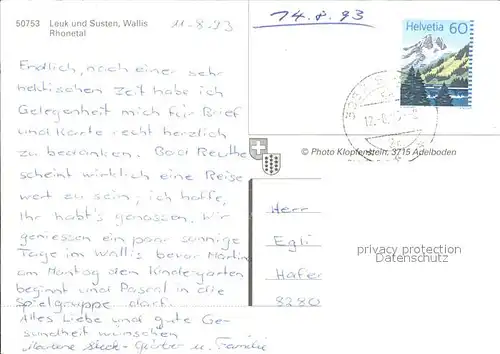 50753 Leuk und Susten, Wallis
Rhonetal
11-8-93
14.8.93
Helvetia 60
Endlich, nach einer sehr
hektischen Zeit habe ich
Gelegenheit mich für Brief
und Karte recht herzlich
zu bedanken. Bad Reuthe
scheint wirklich eine Reise
wert zu sein, ich hoffe,
Ihr habt's genossen. Wir
geniessen ein paar sonnige
Tage im Wallis bevor Martin
am Montag den Kindergarten
beginnt und Pascal in die
Spielgruppe darf.
Alles Liebe und gute Ge-
sundheit wünschen
u. Familie
© Photo Klopfenstein, 3715 Adelboden
Herr
Egli
Hafer
8280
privacy protection
Datenschutz